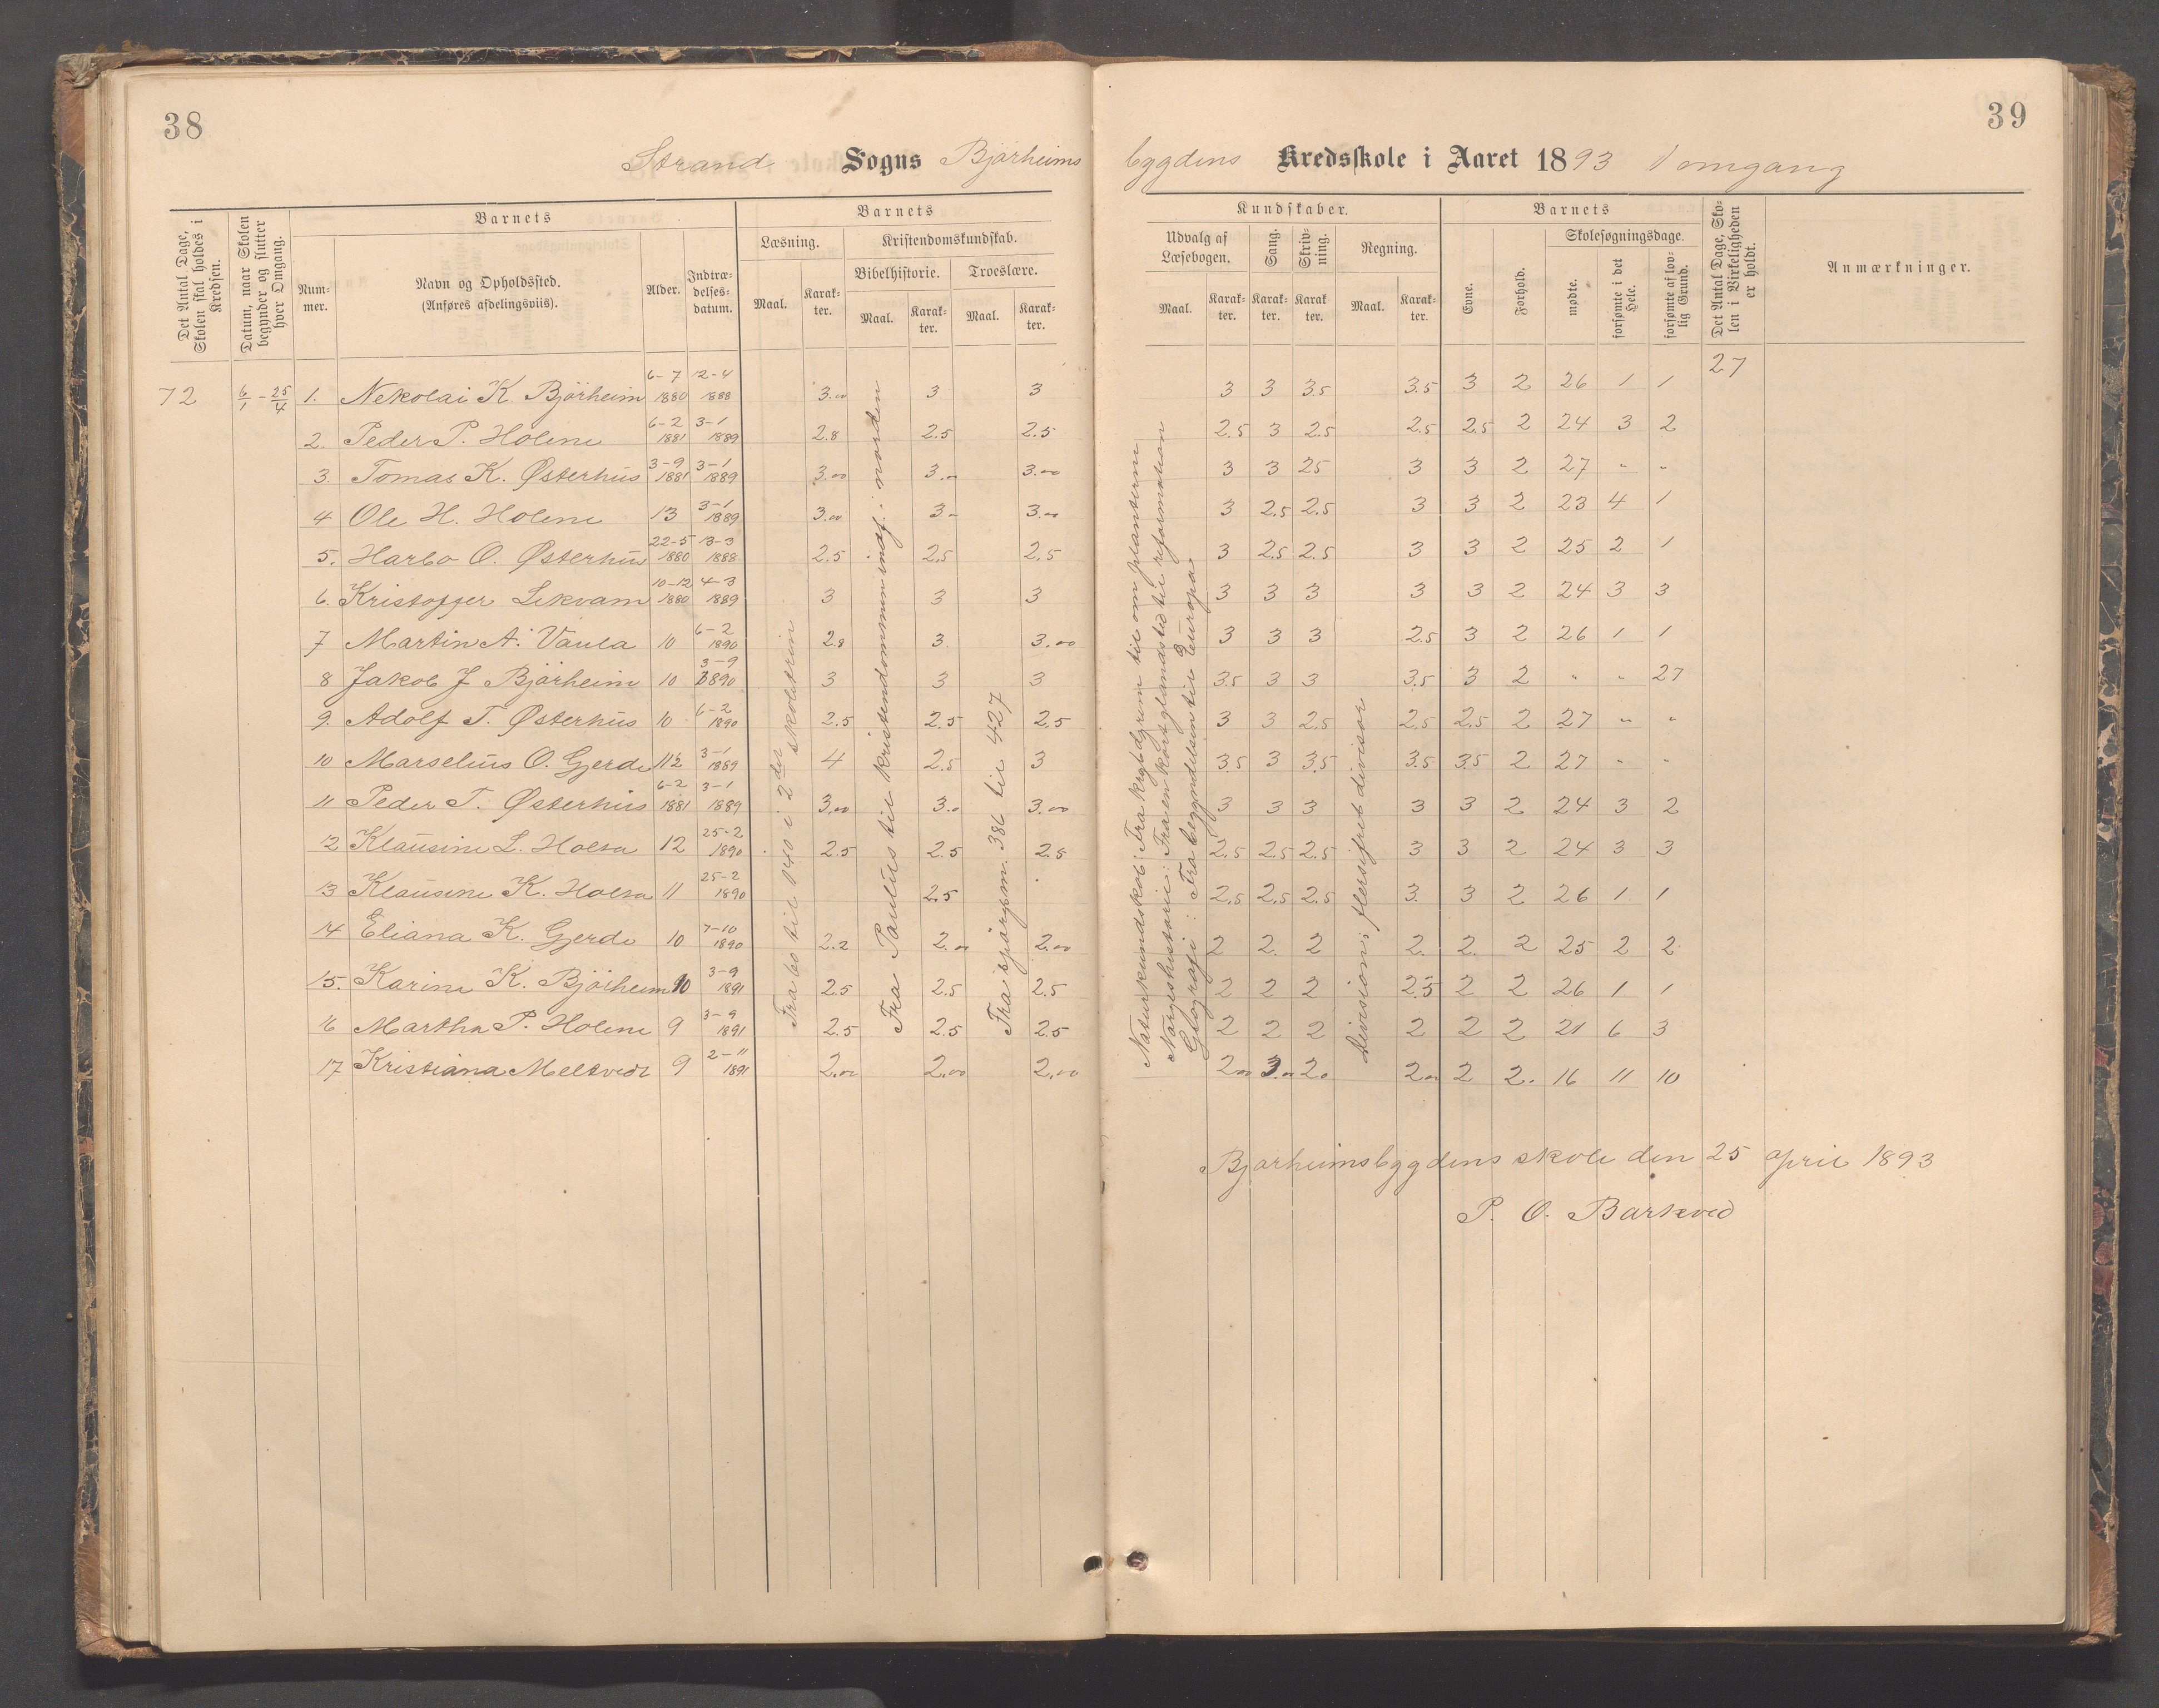 38
39
Strand Sogns Bjørheims bygdens Kredsskole i Aaret 1893 1 omgang
Det Antal Dage, Skolen skal holdes i Kredsen.
Datum, naar Skolen begynder og slutter hver Omgang.
Barnets
Nummer.
Navn og Opholdssted. (Anføres afdelingsviis).
Alder.
Indtrædelsesdatum.
Barnets
Læsning.
Maal. Karakter.
Kristendomskundskab.
Bibelhistorie.
Maal. Karakter.
Troeslære.
Maal. Karakter.
Kundskaber.
Udvalg af Læsebogen.
Maal. Karakter.
Sang.
Karakter.
Skrivning.
Karakter.
Regning.
Maal. Karakter.
Barnets
Evne.
Forhold.
Skolesøgningsdage.
mødte.
forsømte i det Hele.
forsømte af lovlig Grund.
Det Antal Dage, Skolen i Virkeligheden er holdt.
Anmærkninger.
72 6/1 - 25/4 1. Nekolai K. Bjørheim 6-7 1880 2-4 1888 3.00 3 3 3 3 3.5 3.5 3 2 26 1 1 27
2. Peder P. Holene 6-2 1881 3-1 1889 2.8 2.5 2.5 2.5 3 2.5 2.5 2.5 2 24 3 2
3. Tomas K. Østerhus 3-9 1881 3-1 1889 3.00 3.00 3.00 3 3 25 3 3 2 27 " "
4 Ole H. Holene 13 3-1 1889 3.00 3 3.00 3 2.5 2.5 3 3 2 23 4 1
5. Harbo O. Østerhus 22-5 1880 13-3 1888 2.5 2.5 2.5 3 2.5 2.5 3 3 2 25 2 1
6. Kristoffer Lekvam 10-12 1880 4-3 1889 3 3 3 3 3 3 3 3 2 24 3 3
7 Martin A. Vaula 10 6-2 1890 2.8 3 3.00 3 3 3 2.5 3 2 26 1 1
8 Jakob J Bjørheim 10 3-9 1890 3 3 3 3.5 3 3 3.5 3 2 " " 27
9. Adolf T. Østerhus 10 6-2 1890 2.5 2.5 2.5 3 3 2.5 2.5 2.5 2 27 " "
10 Marselius O. Gjerde 11½ 3-1 1889 4 2.5 3 3.5 3 3.5 3.5 3.5 2 27 " "
11 Peder T. Østerhus 6-2 1881 3-1 1889 3.00 3.0 3.00 3 3 3 3 3 2 24 3 2
12 Klausine L. Holta 12 25-2 1890 2.5 2.5 2.5 2.5 2.5 2.5 3 3 2 24 3 3
13 Klausine K. Holta 11 25-2 1890 2.5 2.5 2.5 2.5 3. 3 2 26 1 1
14 Eliana K. Gjerde 10 7-10 1890 2.2 2.00 2.00 2 2. 2 2. 2. 2 25 2 2
15. Karine K. Bjørheim 10 3-9 1891 2.5 2.5 2.5 2 2 2 2.5 2 2 26 1 1
16 Martha P. Holene 9 3-9 1891 2.5 2.5 2.5 2 2 2 2 2 2 21 6 3
17 Kristiana Meltvedt 9 2-11 1891 2.00 2.00 2.00 2.00 3.00 2.0 2.00 2 2. 16 11 10
Fra 60 til 140 i 2 den skoletrin
Fra Paulus til kristendommen indf. i norden
Fra spørgsm. 386 til 427
Naturkundskab: Fra krybdyrene til om planterne
Norgeshistorie: Fra en kort glandstid til reformationen
Geografi: Fra begyndelsen til Europa.
Division: flersifret divisor
Bjørheimsbygdens skole den 25 april 1893
P. O. Barkved